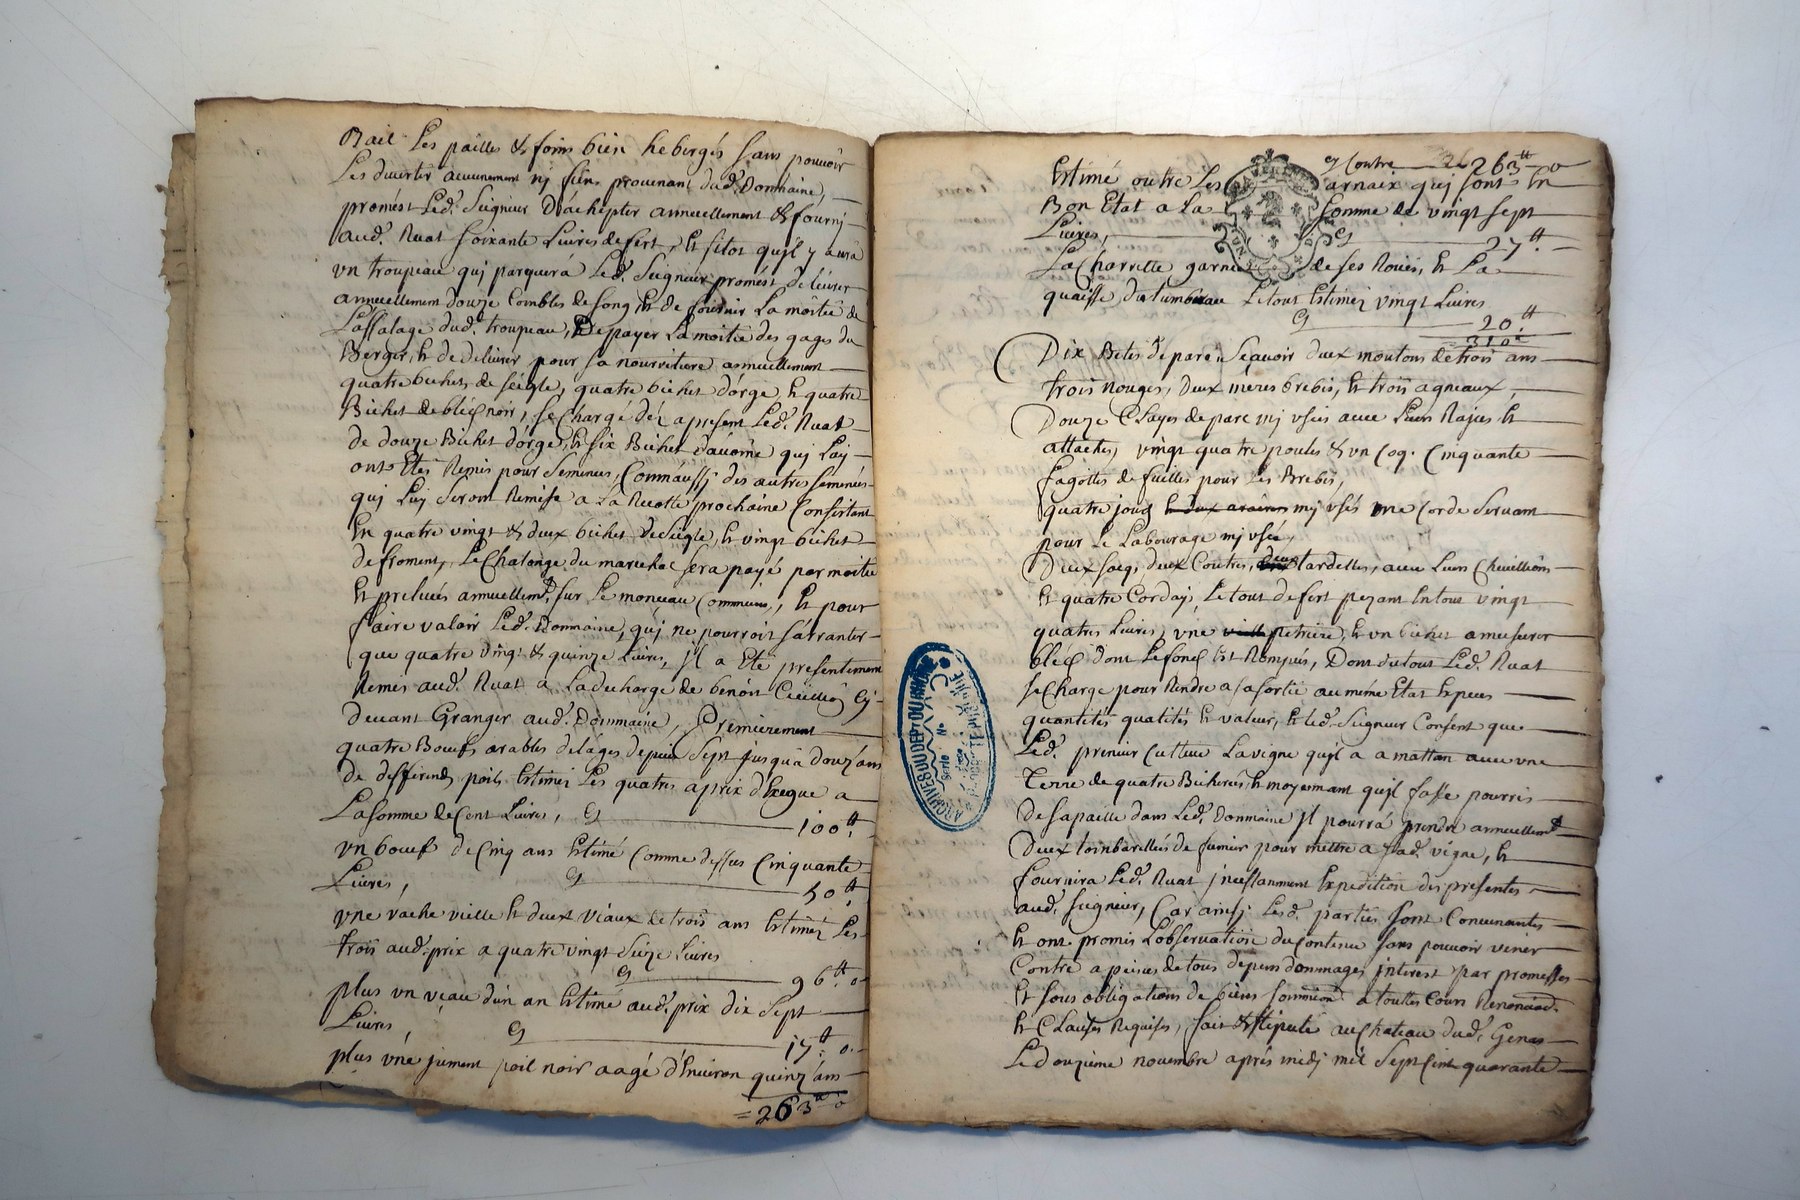 Bail les pailles & foins bien hebergés sans pouvoir
Les divertir aucunement nj fiens provenant dud. Dommaine,
promést Led. Seigneur D'achepter annuellement & fournj
aud. Ruat soixante Livres de fert, Et sitot qujl y aura
vn troupeau quj parquera Led. Seigneur promést de livrer
annuellement douze Coinbles de song Et de fournir La moitié de
Lassalage dud. troupeau, Et de payer La moitié des gages du
Berger, Et de delivrer pour sa nourriture annuellement
quatre bichets de séigle, quatre bichet d'orge Et quatre
Bichet de bléd noir, se Charge déz apresent Led. Ruat
de douze Bichet d'orge, Et six Bichet d'avoine quj Luy
ont Etés Remis pour semences, Comm'aussj des autres semences
quj Luy seront Remise a La Recolte prochaine Consistant
En quatre vingt & deux bichet de seigle, Et vingt bichet
de froment, Le Chalange du marechal sera payé par moitié
Et prelevés annuellemt. sur Le monceau Commun, Et pour
faire valoir Led. Dommaine, quj ne pourroit s'arranter
que quatre vingt & quinze Livres, jl a Eté presentement
Remis aud. Ruat a La decharge de benoit Cj
devant Granger aud. Dommaine, Premierement
quatre Boeufs arables de l'ages depuis sept jusqu'a douz'ans
de differends poils Estimez Les quatres a prix d'Exegue a
La somme de Cent Livres, Cy 100tt.
vn boeuf de Cinq ans Estimé Comme dessus Cinquante
Livres, Cy 50tt.
vne vache vieille Et deux véaux de trois ans Estimez Les
trois aud. prix a quatre vingt Seize Livres
Cy 96tt. o
plus vn véau d'un an Estimé aud. prix dix sept
Livres, Cy 17tt. o.
plus vne jument poil noir aagé d'Environ quinz'ans
=263tt o
Cy Contre 263tt o
Estimé outre Les arnaix quj sont En
Bon Etat a La somme de vingt sept
Livres, Cy 27tt.
La Charrette garnie de ses Roües, Et La
quaisse du tumbereau Le tout Estimez vingt Livres
Cy 20.tt
=310tt
Dix Betes de parc, Sçavoir deux moutons de trois ans
trois Rouges, deux méres brebis, Et trois agneaux,
Douze Clayes de parc mj vsées avec Leurs Et
attaches, vingt quatre poules & vn Coq. Cinquante
fagottes de fuilles pour Les Brebis,
quatre joug Et deux araires mj vsés vne Corde servant
pour Le Labourage mj vsée,
Deux socq, deux Coutres, deux tardelles, avec Leurs Chevillons
Et quatre Corday, Le tout de fert pezant En tout vingt
quatres Livres, vne vieille petriere, Et vn bichet a mesurer
bléd dont Le fond Est Rompüs, Dont du tout Led. Ruat
se Charge pour Rendre a sa sortie au méme Etat Especes
quantités qualités Et valeur, Et led. Seigneur Consent que
Led. prenieur Cultive La vigne qujl a a mattan avec vne
Terre de quatre Bicherées, Et moyennant qujl fasse pourrir
de sa paille dans Led. Dommaine jl pourrá prendre annuellemt.
Deux tombarellés de fumier pour mettre a sad. vigne, Et
fournira Led. Ruat jncessamment Expedition des presentes
aud. Seigneur, Car ainsj Lesd. parties sont Convenantes
Et ont promis L'observation du Contenu sans pouvoir venir
Contre a peines de tous depens dommages jnterest par promesses
Et sous obligations de biens a touttes Cours Renonciâd.
Et Clauses Requises, fait & stipulé au Chateau dud. Genas
Le douzieme novembre aprés midj mil Sept Cent quarante
ARCHIVES DU DEPT DU RHONE
Serie
N°